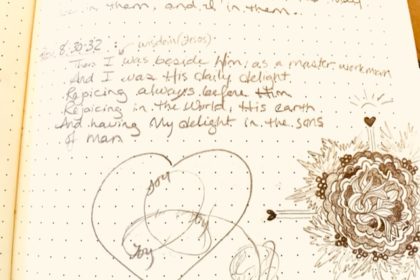 in them, and I in them.
8:30-32 : wisdom
Then I was beside Him, as a master workman
And I was His daily delight,
Rejoicing always before Him
Rejoicing in the World, His earth
And having My delight in the sons
of man
Joy
Joy
Joy